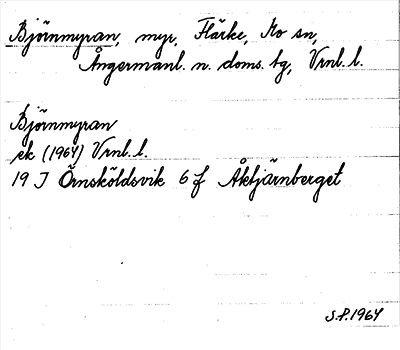 Björnmyran, myr, Flärke, Mo sn,
Ångermanl. n. doms. tg, Vrnl. l.
Björnmyran
ek (1964) Vrnl. l.
19 J Örnsköldsvik 6 f Åktjärnberget
S.P. 1964